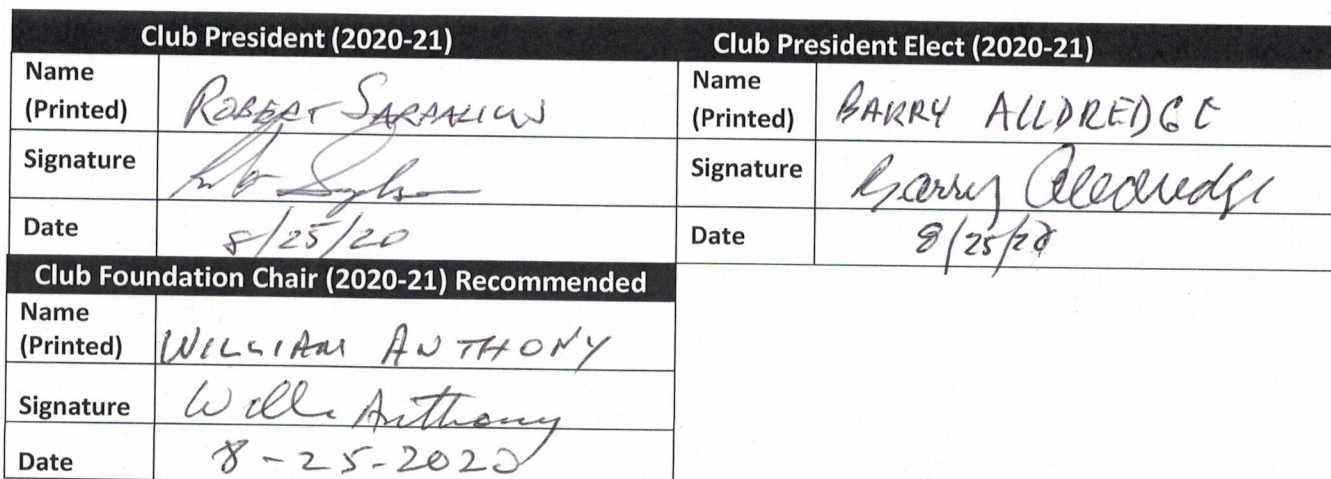 Club President (2020-21)
Name
(Printed)
ROBERT
Signature
Date
8/25/20
Club President Elect (2020-21)
Name
(Printed)
BARRY ALLDREDGE
Signature
Barry Alldredge
Date
8/25/20
Club Foundation Chair (2020-21) Recommended
Name
(Printed)
WILLIAM ANTHONY
Signature
Anthony
Date
8-25-2020